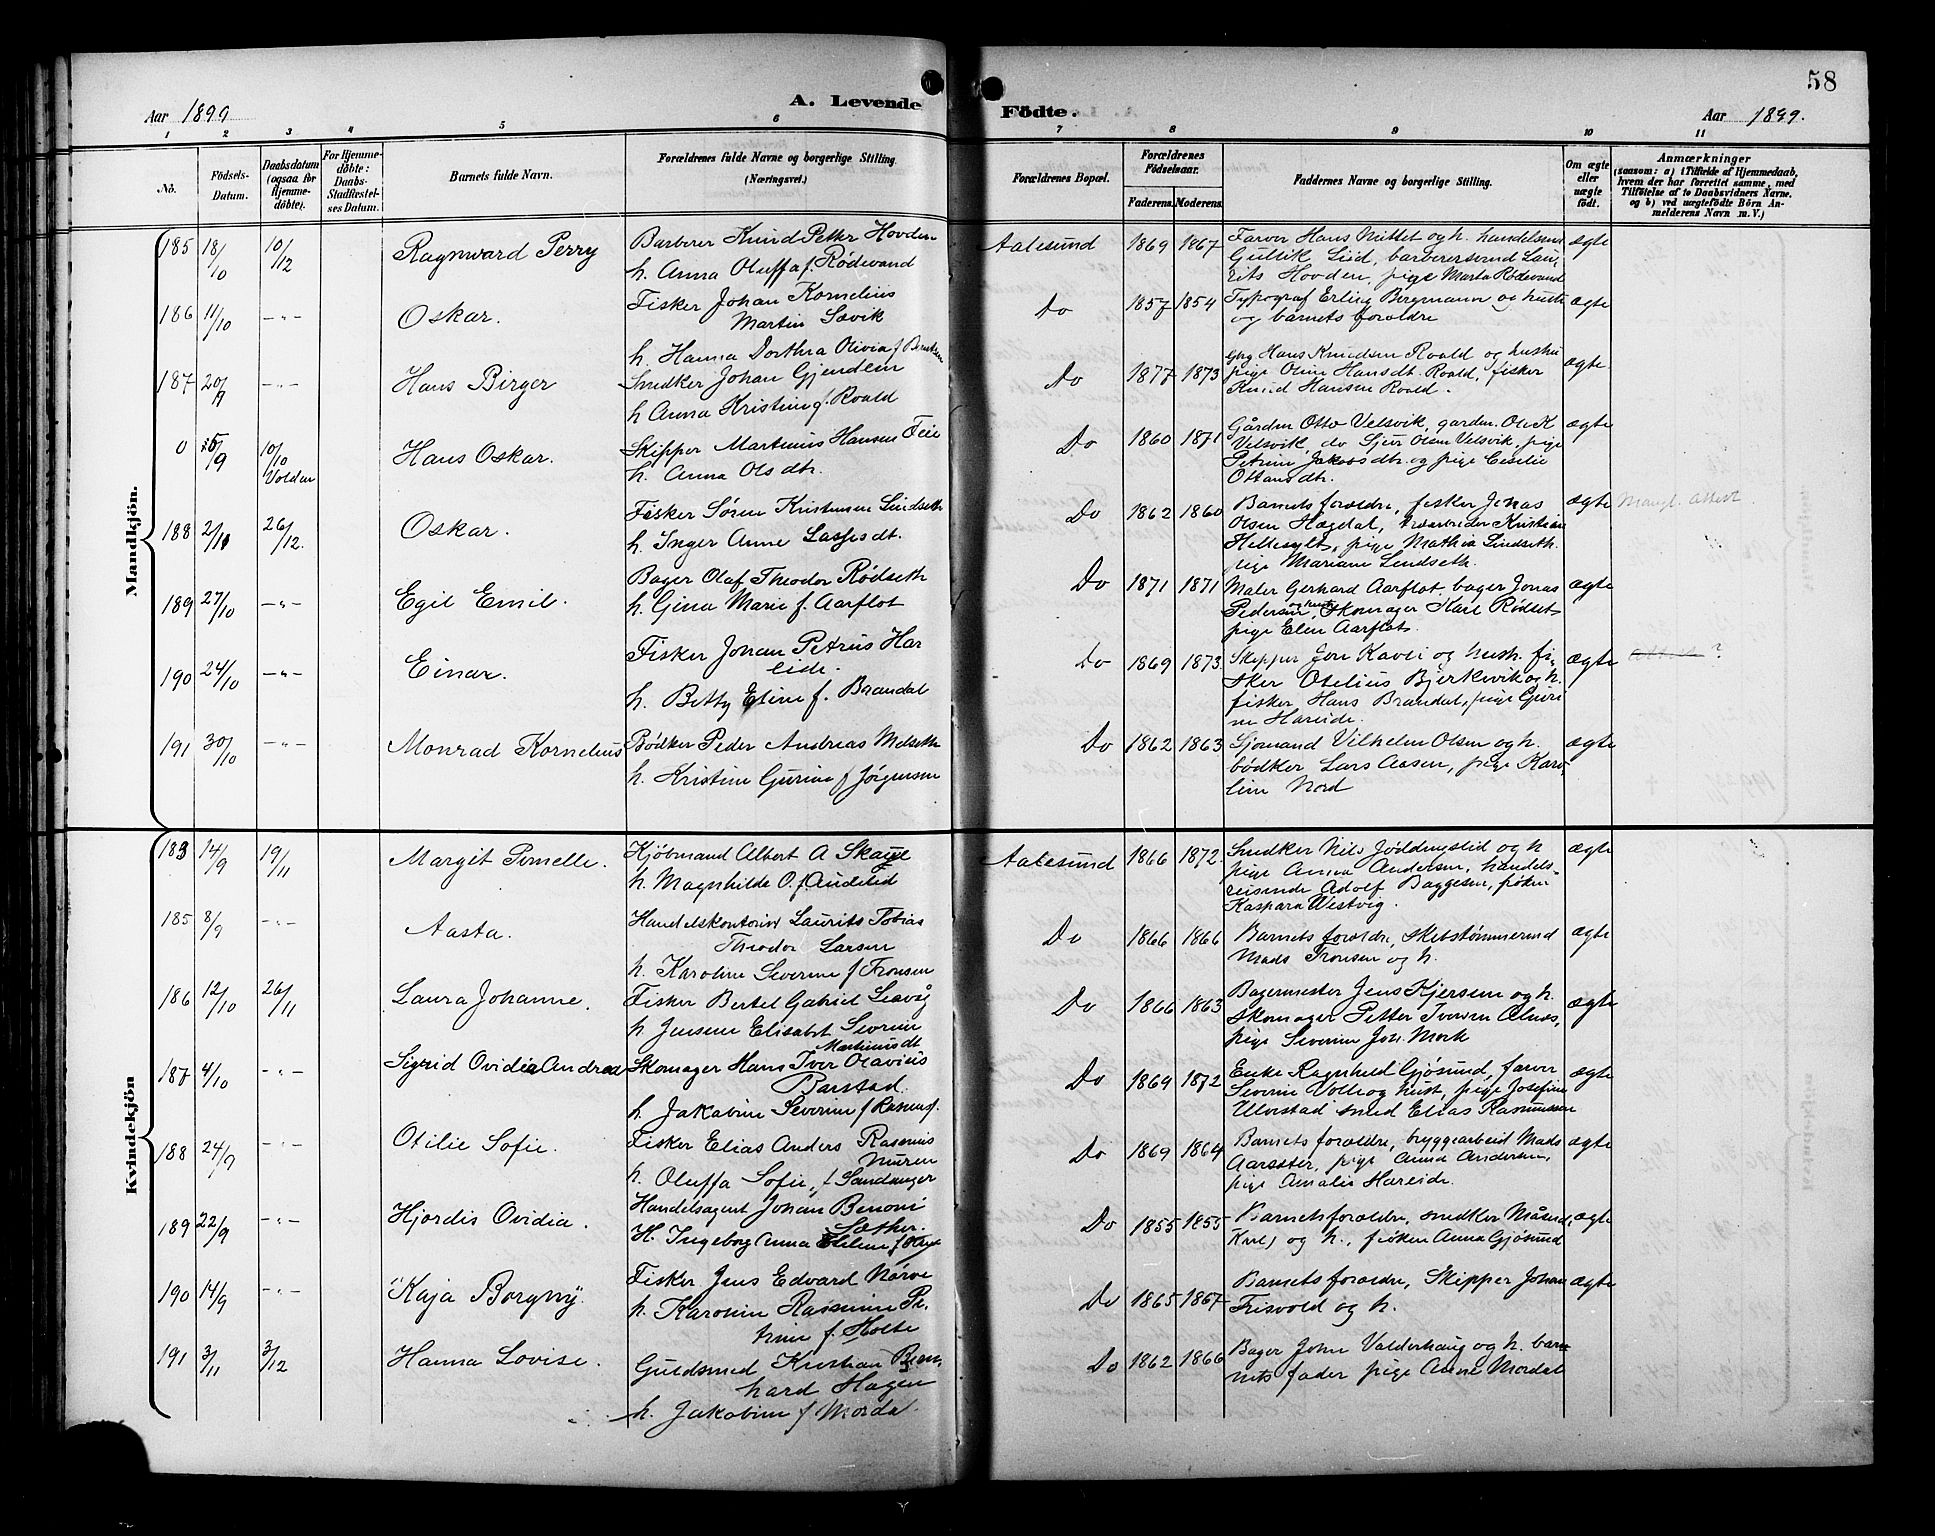 Aar 1899
A. Levende
Födte.
Aar 1899.
58
1 2 3 4 5 6 7 8 9 10 11
No.
Födsels-
Datum.
Daabsdatum
(ogsaa for
Hjemme-
döbte).
For Hjemme-
döbte:
Daabs-
Stadfæstel-
ses Datum.
Barnets fulde Navn.
Forældrenes fulde Navne og borgerlige Stilling.
(Næringsvei.)
Forældrenes Bopæl.
Forældrenes
Födselsaar.
Faderens. Moderens.
Faddernes Navne og borgerlige Stilling.
Om ægte
eller
uægte
födt.
Anmærkninger
(saasom: a) i Tilfælde af Hjemmedaab,
hvem der har forrettet samme, med
Tilföielse af to Daabsvidners Navne.
og b) ved uægtefödte Börn An-
melderens Navn m. V.)
Mandkjön.
185 18/10 10/12 Ragnward Perry
Barberer Knud Petter Hovden
h. Anna Oluffa f. Rödevand
Aalesund 1869 1867
Farver Hans Nuttet og h. handelsm.
Gullik Lied, barberersvend Lau-
rits Hovden, pige Marta Rödevand
ægte
186 11/10 -"- Oskar.
Fisker Johan Kornelius
Martin Sævik
h. Hanna Dorthea Olivia f. Berntsen
Do 1857 1854
Typograf Erling Bergmann og hustr
og barnets forældre
ægte
187 20/9 -"- Hans Birger
Snedker Johan Gjendem
h Anna Kristine f. Roald
Do 1877 1873
Gbg Hans Knudsen Roald og hustru
pige Oline Hansdt. Roald, fisker
Knud Hansen Roald.
ægte
0 25/9 10/10 Volden Hans Oskar.
Skipper Martinus Hansen Feie
h. Anna Olsdtr.
Do 1860 1871
Gården Otto Velsvik, gården. Ole K
Velsvik, do Sjur Olsen Velsvik, pige
Petrine Jakobsdtr. og pige Cesilie
Ottansdtr.
ægte
188 2/11 26/12. Oskar.
Fisker Sören Kristensen Lindseth
h. Inger Anne Lassesdt.
Do 1862 1860
Barnets forældre, fisker Jonas
Olsen Hægdal, Kristian
Hellesylt, pige Mathia Lindseth.
pige Mariane Lindseth.
ægte Mangl. attest
189 27/10 -"- Egil Emil.
Bager Olaf Theodor Rödseth
h. Gina Marie f. Aarflot
Do 1871 1871
Maler Gerhard Aarflot, bager Jonas
Pedersen og hust, Skomager Karl Rödset,
pige Elen Aarflot.
ægte
190 24/10 -"- Einar.
Fisker Johan Petrus Har
eide.
h. Betty Eline f. Brandal
Do 1869 1873
Skipper Jon Kavli og hush. fi-
sker Otelius Bjerkevik og h.
fisker Hans Brandal, pige Guri-
ne Hareide.
ægte attest ?
191 30/10 -"- Monrad Kornelius
Bödker Peder Andreas Melseth
h. Kristine Gurine f. Jörgensen
Do 1862 1863
Sjömand Vilhelm Olsen og h.
bödker Lars Aasen, pige Karo-
line Nord
ægte
Kvindekjön
183 14/9 19/11 Margit Pernelle.
Kjöbmand Albert A Skagye
h. Magnhilde O. f. Audestad
Aalesund 1866 1872.
Snedker Nils Jöddingstid og h
pige Anna Andersen, handels-
reisende Adolf Baggesen, fröken
Kaspara Westvig.
ægte
185 8/9 -"- Aasta.
Handelskontorist Laurits Tobias
Theodor Larsen
h. Karoline Severine f. Fronsen
Do 1866 1866
Barnets forældre, skibstömmermd
Mads Fronsen og h.
ægte
186 12/10 26/11 Laura Johanne.
Fisker Bertel Gabriel Lesvåg
h. Jensine Elisabet Sevrine
Martinusdt
Do 1866 1863
Bagermester Jens Kjersem og h.
Skomager Petter Iversen Alnes,
pige Severine Joh. Mork
ægte
187 4/10 -"- Sigrid Ovidia Andrea
Skomager Hans Iver Olavius
Barstad.
h. Jakobine Severine f Rasmus.
Do 1869 1872
Enke Ragnhild Gjösund, farver
Severin Volle og hust, pige Josefine
Ulvestad smed Elias Rasmussen
ægte
188 24/9 -"- Otilie Sofie.
Fisker Elias Anders Rasmus
Muren
h. Oluffa Sofie f Sandanger
Do 1869 1864
Barnets forældre, bryggearbeid Mads
Aarseter, pige Anna Andersen,
pige Amalie Hareide.
ægte
189 22/9 -"- Hjordis Ovidia.
Handelsagent Johan Benoni
Sæther.
H. Ingeborg Anna Eline f
Do 1855 1855
Barnets forældre, snedker Måseid,
og h., fröken Anna Gjösund
ægte
190 14/9 -"- Kaja Borgny.
Fisker Jens Edvard Nörve
h. Karoline Rasmine Pe-
trine f. Holte
Do 1865 1867
Barnets forældre, Skipper Johan
Frisvold og h.
ægte
191 3/11 3/12 Hanna Lovise.
Guldsmed Kristian Bern
hard Hagen
h. Jakobine f Mordal.
Do 1862 1866
Bager John Valderhaug og h. bar-
nets fader pige Anne Mordal
ægte